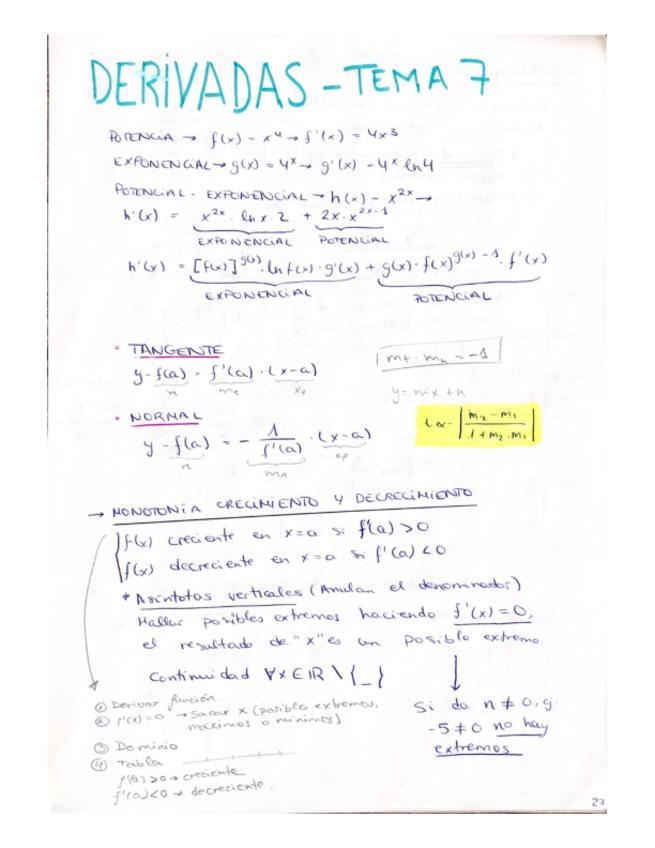 DERIVADAS - TEMA 7
POTENCIA → f(x) = x⁴ → f'(x) = 4x³
EXPONENCIAL → g(x) = 4ˣ → g'(x) = 4ˣ ln4
POTENCIAL - EXPONENCIAL → h(x) = x²ˣ →
h'(x) = x²ˣ · ln x · 2 + 2x · x²ˣ⁻¹
EXPONENCIAL POTENCIAL
h'(x) = [f(x)]^g(x) · ln f(x) · g'(x) + g(x) · f(x)^g(x)-1 · f'(x)
EXPONENCIAL POTENCIAL
• TANGENTE
y - f(a) = f'(a) · (x-a)
n mt xp
mt · mn = -1
y = mx + n
• NORMAL
y - f(a) = - 1/f'(a) · (x-a)
n mn xp
tα = |m₂ - m₁ / 1 + m₂ · m₁|
→ MONOTONÍA CRECIMIENTO Y DECRECIMIENTO
f(x) creciente en x=a si f'(a) > 0
f(x) decreciente en x=a si f'(a) < 0
* Asíntotas verticales (Anulan el denominador)
Hallar posibles extremos haciendo f'(x) = 0,
el resultado de "x" es un posible extremo.
Continuidad ∀x∈ℝ \ {_}
① Derivar función.
② f'(x)=0 → Sacar x (posibles extremos,
máximos o mínimos)
③ Dominio
④ Tabla
f'(a) > 0 → creciente
f'(a) < 0 → decreciente.
Si da n ≠ 0, ej:
-5 ≠ 0 no hay
extremos
27